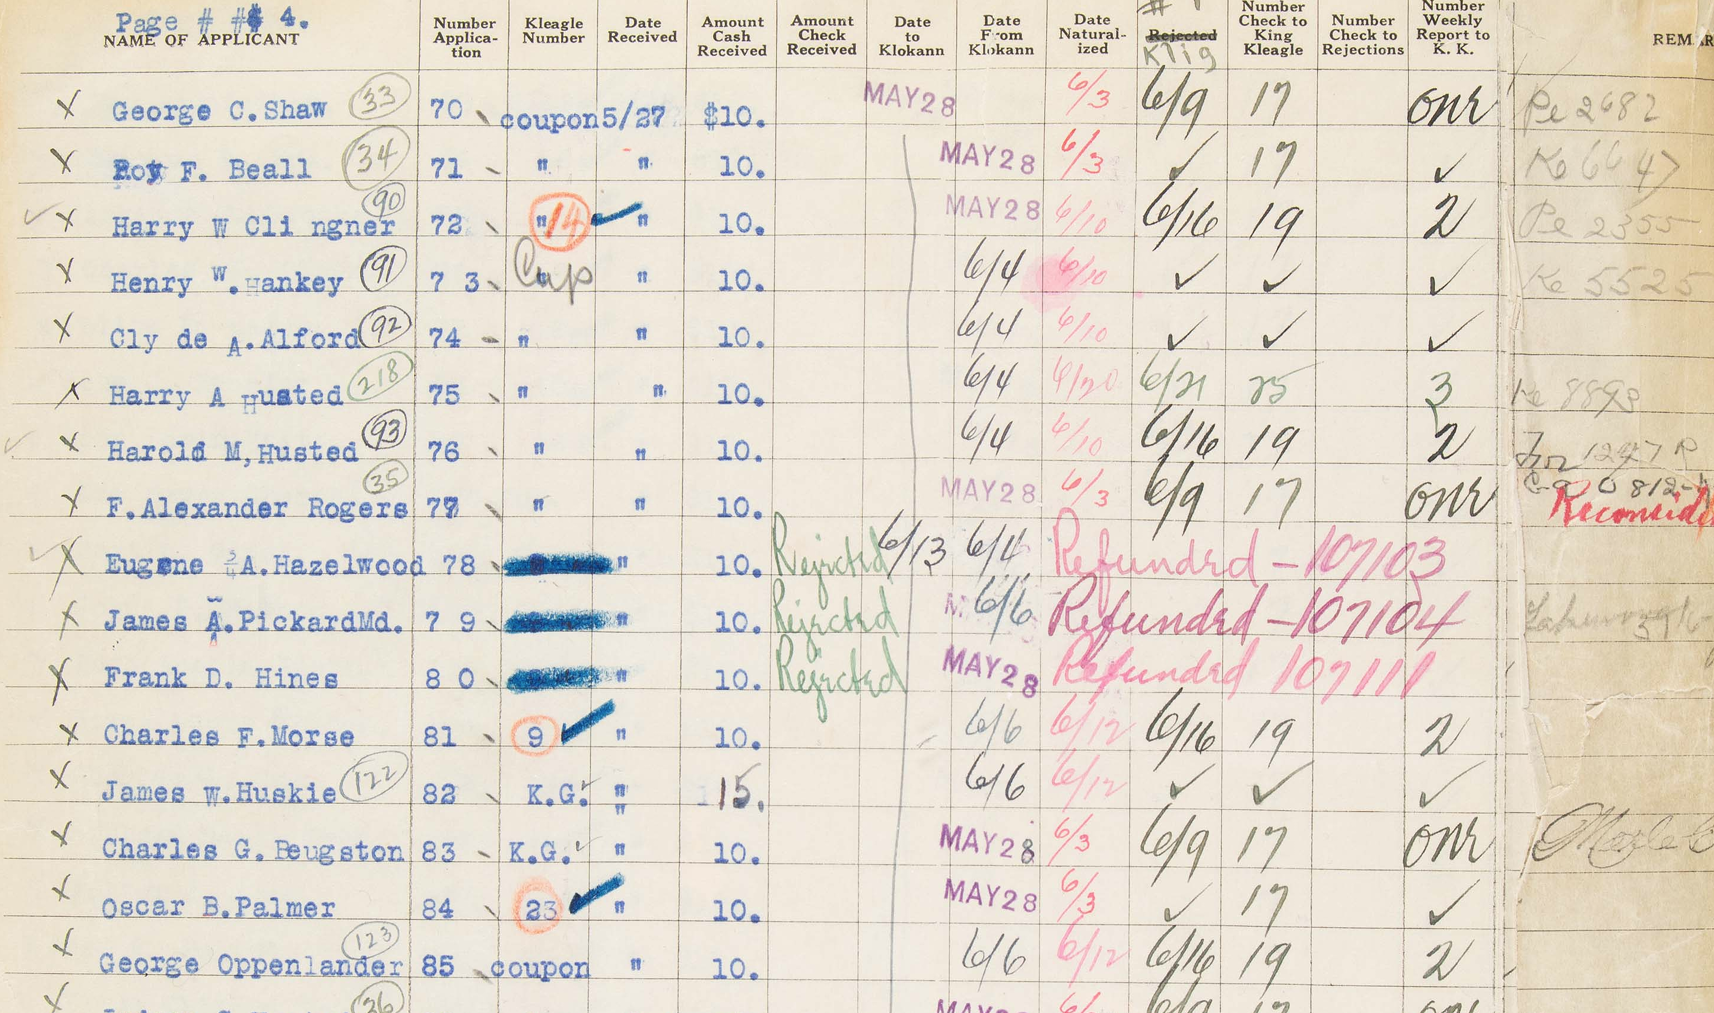 Page # ## 4.
NAME OF APPLICANT Number Applica- tion Kleagle Number Date Received Amount Cash Received Amount Check Received Date to Klokann Date From Klokann Date Natural- ized # 1 Rejected Klig Number Check to King Kleagle Number Check to Rejections Number Weekly Report to K. K. REMAR
X George C. Shaw 33 70 coupon 5/27 $10. MAY 28 6/3 6/9 17 one Pe 2682
X Roy F. Beall 34 71 " " 10. MAY 28 6/3 ✓ 17 ✓ Ke 6647
✓ X Harry W Cli ngner 90 72 " 14 ✓ " 10. MAY 28 6/10 6/16 19 2 Pe 2355
X Henry W. Hankey 91 7 3 Cap " 10. 6/4 6/10 ✓ ✓ ✓ Ke 5525
X Cly de A. Alford 92 74 " " 10. 6/4 6/10 ✓ ✓ ✓
X Harry A Husted 218 75 " " 10. 6/4 6/20 6/21 25 3 Ke 8893
✓ X Harold M, Husted 93 76 " " 10. 6/4 6/10 6/16 19 2 1247 R
X F. Alexander Rogers 35 77 " " 10. MAY 28 6/3 6/9 17 one Ga 0812- Reconside
✓ X Eugene A. Hazelwood 78 " 10. Rejected 6/13 6/4 Refunded - 107103
X James A. Pickard Md. 7 9 " 10. Rejected 6/6 Refunded - 107104
X Frank D. Hines 8 0 " 10. Rejected MAY 28 Refunded 107111
X Charles F. Morse 81 9 ✓ " 10. 6/6 6/12 6/16 19 2
X James W. Huskie 122 82 K.G. ✓ " 15. 6/6 6/12 ✓ ✓ ✓
X Charles G. Beugston 83 K.G. ✓ " 10. MAY 28 6/3 6/9 17 one
X Oscar B. Palmer 84 23 ✓ " 10. MAY 28 6/3 ✓ 17 ✓
X George Oppenlander 123 85 coupon " 10. 6/6 6/12 6/16 19 2
X 36